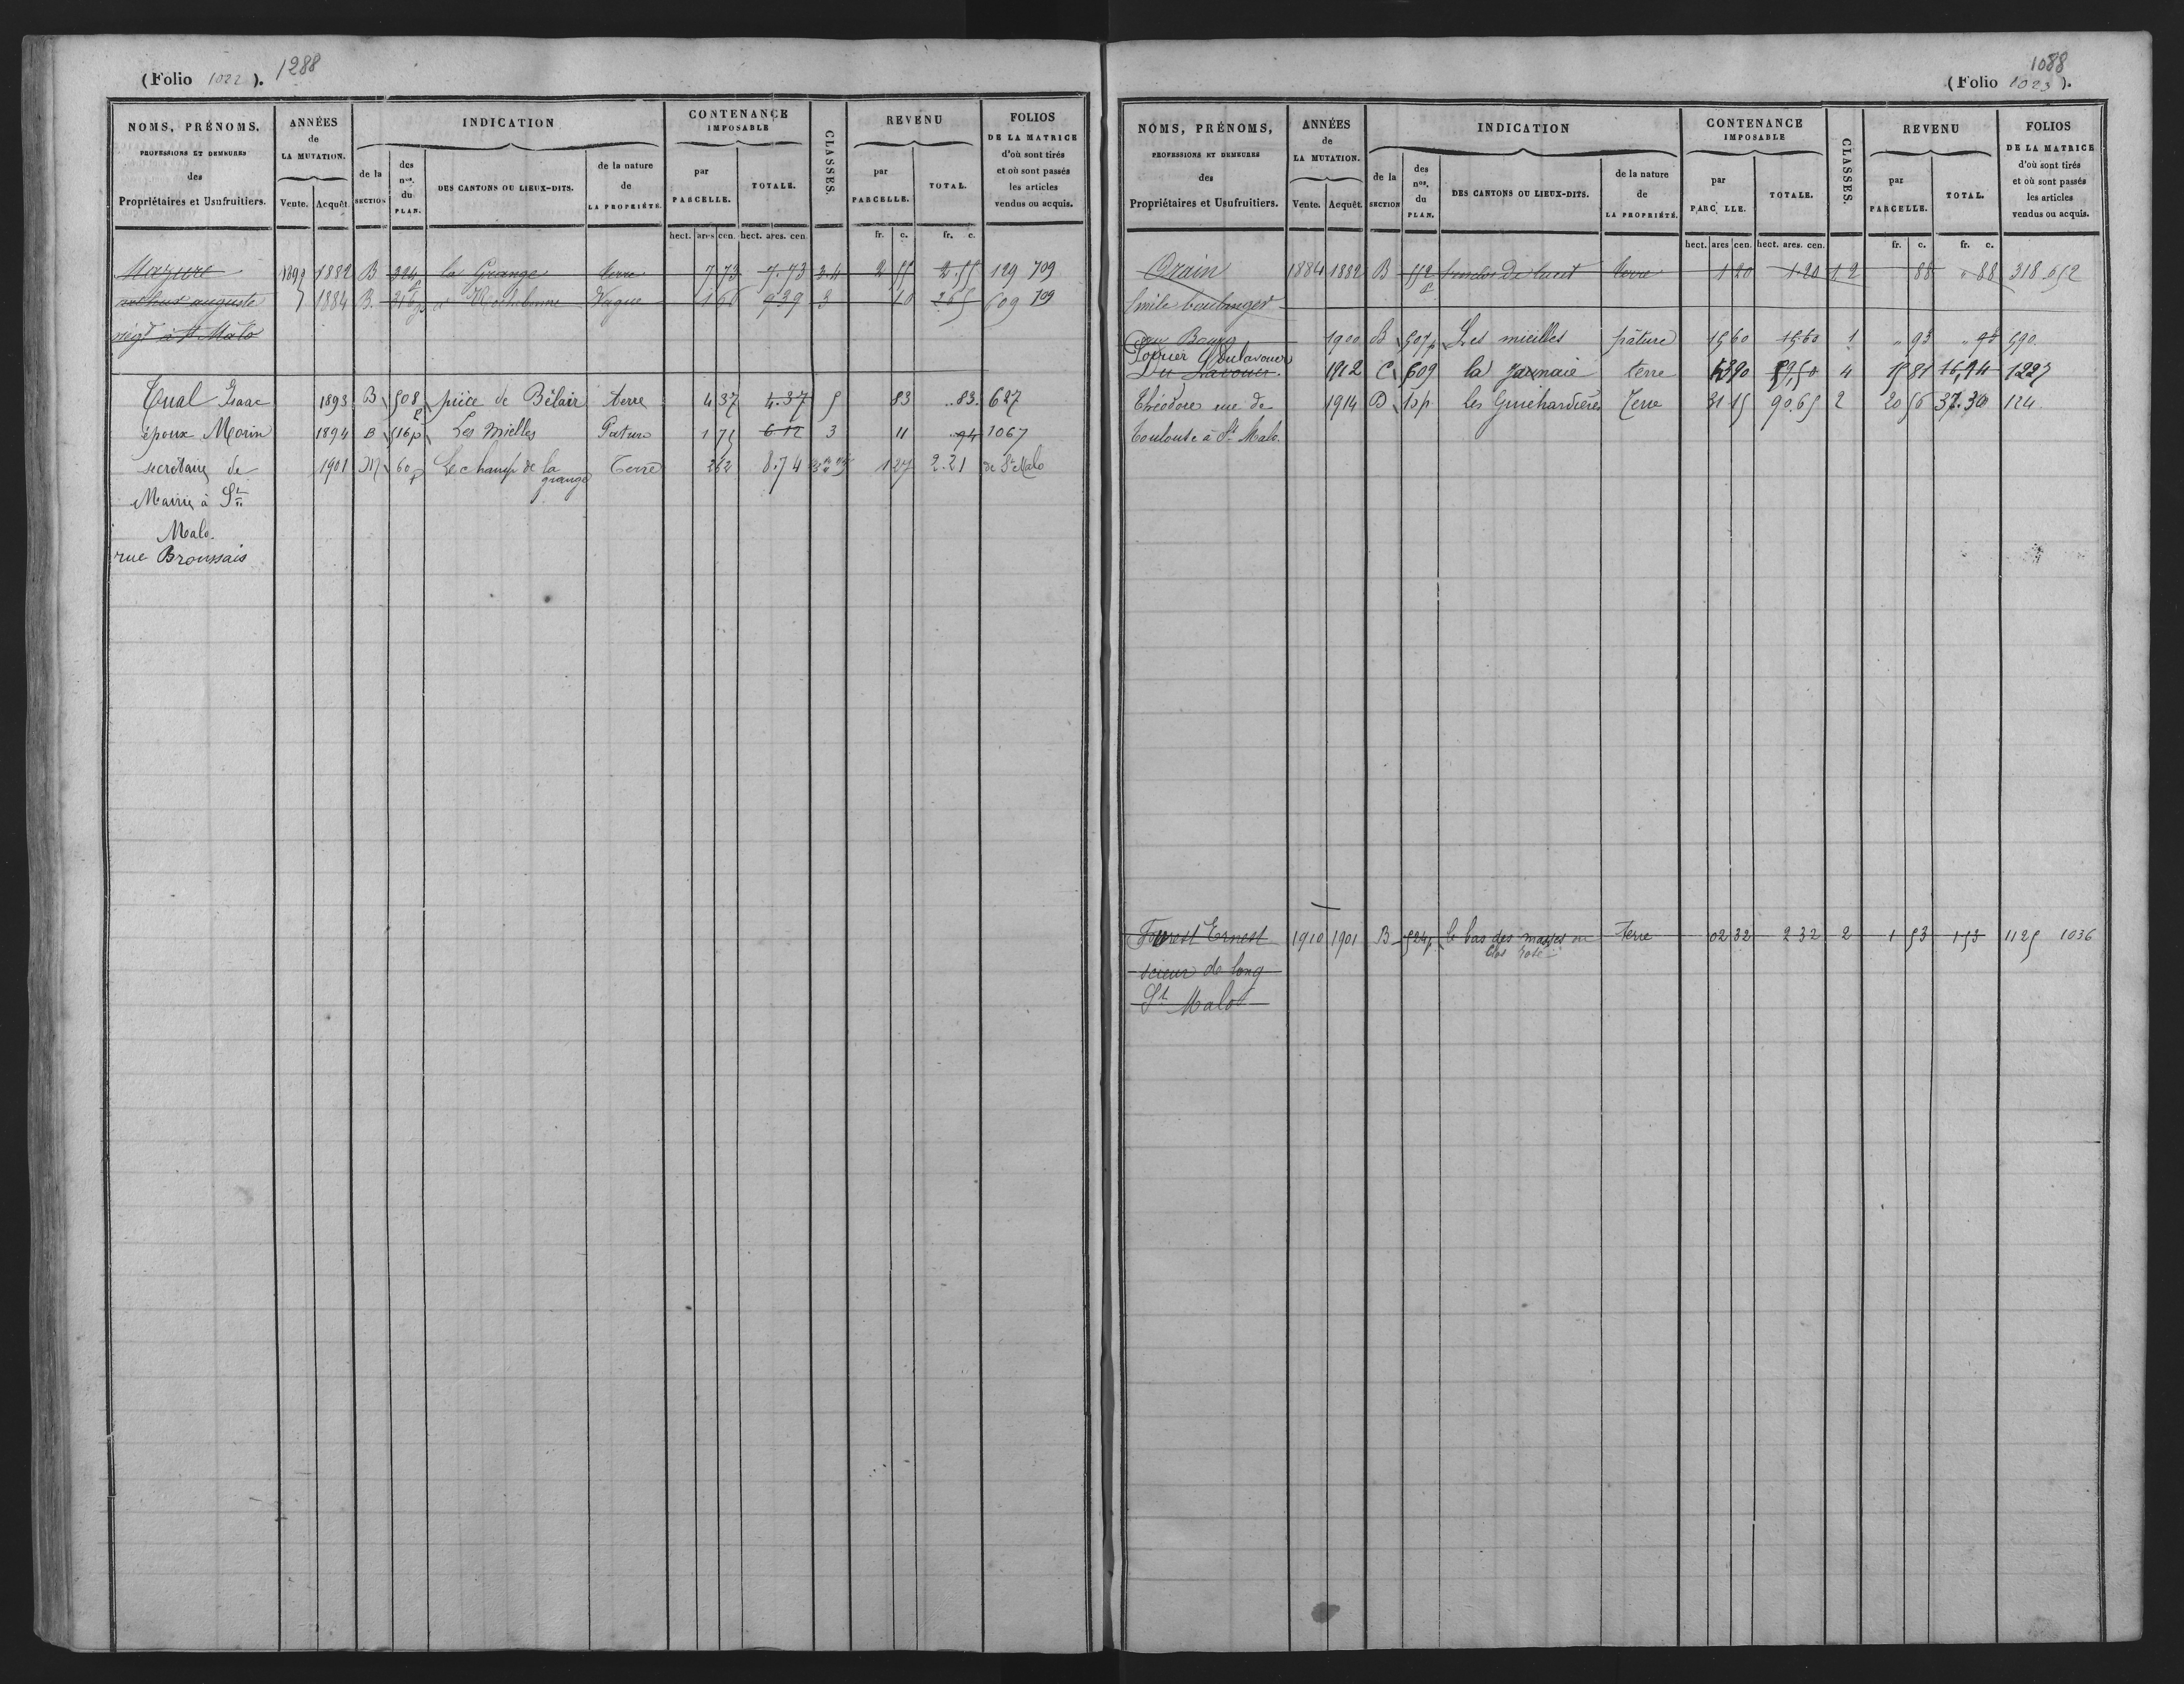 (Folio 1022). 1288
NOMS, PRÉNOMS, PROFESSIONS ET DEMEURES des Propriétaires et Usufruitiers.
ANNÉES de LA MUTATION. Vente. Acquêt.
INDICATION de la SECTION des nos. du PLAN. DES CANTONS OU LIEUX-DITS. de la nature de LA PROPRIÉTÉ.
CONTENANCE IMPOSABLE par PARCELLE. TOTALE.
CLASSES.
REVENU par PARCELLE. TOTAL.
FOLIOS DE LA MATRICE d'où sont tirés et où sont passés les articles vendus ou acquis.
hect. ares cen. hect. ares. cen. fr. c. fr. c.
1882 B 324 la Grange terre 7 73 7.73 3.4 2 55 2.55 129 709
auguste 1884 B. 316 Vague 1 66 9 39 3 10 2 65 609 709
négt à St Malo
Tual Isaac 1893 B 508 p pièce de Bélair terre 4 37 4.37 5 83 .83. 627
époux Morin 1894 B 516 p Les Mielles Pature 1 75 6 12 3 11 .94 1067
secrétaire de 1901 M 60 p Le champ de la grange Terre 2 62 8.74 1 27 2.21 de St Malo
Mairie à St
Malo.
rue Broussais
1088
(Folio 1023).
NOMS, PRÉNOMS, PROFESSIONS ET DEMEURES des Propriétaires et Usufruitiers.
ANNÉES de LA MUTATION. Vente. Acquêt.
INDICATION de la SECTION des nos. du PLAN. DES CANTONS OU LIEUX-DITS. de la nature de LA PROPRIÉTÉ.
CONTENANCE IMPOSABLE par PARC LLE. TOTALE.
CLASSES.
REVENU par PARCELLE. TOTAL.
FOLIOS DE LA MATRICE d'où sont tirés et où sont passés les articles vendus ou acquis.
hect. ares cen. hect. ares. cen. fr. c. fr. c.
1884 1882 B 552 p terre 1 20 1.20 1 2 88 " 88 318 652
Emile boulanger
au Bourg 1900 B 507 p Les mielles pâture 15 60 15,60 1 " 93 " 93 590
1912 C 609 la Jaunaie terre 43 90 59,50 4 15 81 16,74 1227
Théodore rue de 1914 D 10 p les Guichardières Terre 31 15 90.65 2 20 56 37.30 124
Toulouse à St Malo.
Forest Ernest 1910 1901 B 524 p le bas des masses ou Clos Terre 02 32 2 32 2 1 53 1 53 1125 1036
scieur de long
St Malo